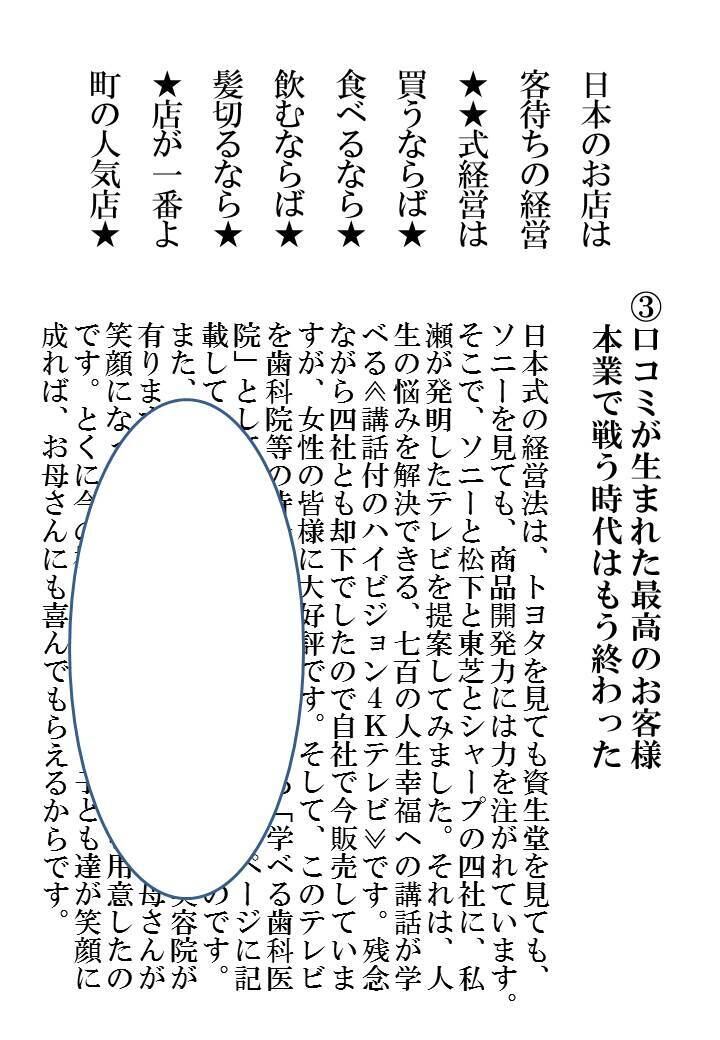 日本のお店は
客待ちの経営
★★式経営は
買うならば★
食べるなら★
飲むならば★
髪切るなら★
★店が一番よ
町の人気店★
③口コミが生まれた最高のお客様
本業で戦う時代はもう終わった
日本式の経営法は、トヨタを見ても資生堂を見ても、
ソニーを見ても、商品開発力には力を注がれています。
そこで、ソニーと松下と東芝とシャープの四社に、私
瀬が発明したテレビを提案してみました。それは、人
生の悩みを解決できる、七百の人生幸福への講話が学
べる≪講話付のハイビジョン４Ｋテレビ≫です。残念
ながら四社とも却下でしたので自社で今販売していま
すが、女性の皆様に大好評です。そして、このテレビ
を歯科院等の 「学べる歯科医
院」とし ページに記
載して のです。
また、 美容院が
有ります 母さんが
笑顔になっ 用意したの
です。とくに今の 子ども達が笑顔に
成れば、お母さんにも喜んでもらえるからです。